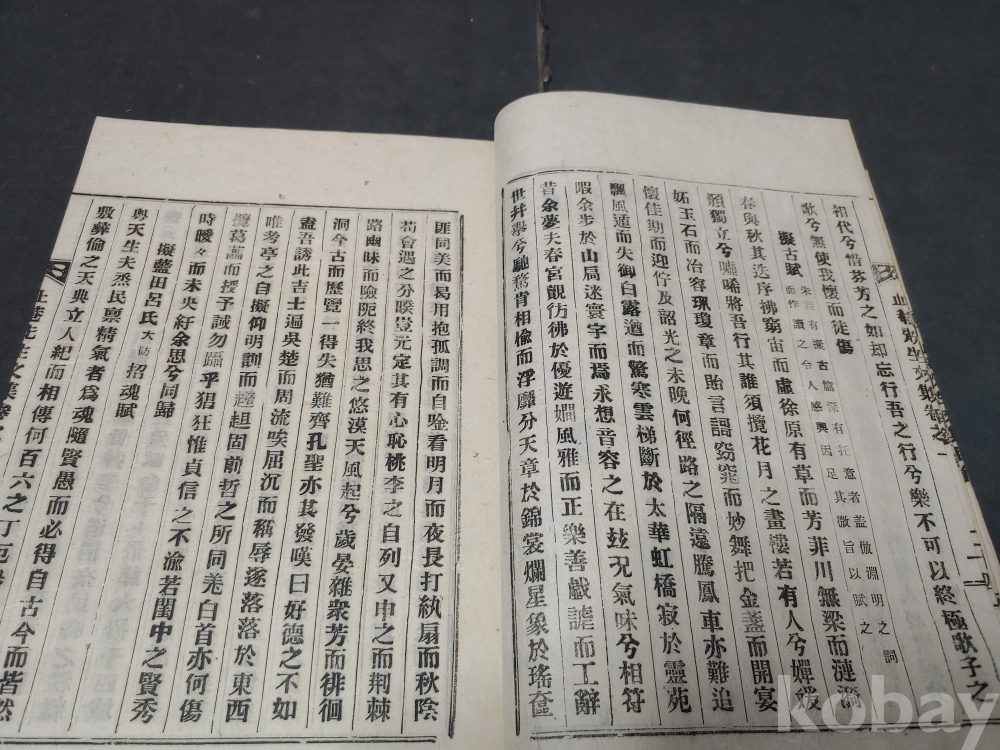 初代兮惜芬芳之如却忘行吾之行兮樂不可以終極歌子之
歌兮無使我懷而徒傷
擬古賦
朱 有擬古 旨深有托意者盖倣淵明之詞
而作讀之令人感興因足其微旨以賦之
春與秋其迭序拂窮宙而盧徐原有草而芳菲川無梁而漣漪
顏獨立兮噓唏將吾行其誰須攬花月之畫樓若有人兮嬋媛
妬玉石而冶容珮瓊章而貽言謌窈窕而妙舞把金盞而開宴
懷佳期而迎佇及韶光之未晚何徑路之隔遠騰鳳車亦難追
飄風遒而失御白露遒而驚寒雲梯斷於太華虹橋寂於靈苑
暇余步於山局迷寰宇而爲永想音容之在玆況氣味兮相符
昔余夢夫春宮觀彷彿於優遊嫺風雅而正樂善戱謔而工辭
世幷擧兮馳騖肯相偸而浮靡分天章於錦裳爛星象於瑤臺
匪同美而曷用抱孤調而自鑒看明月而夜長打紈扇而秋陰
苟會遇之分暌豈元定其有心恥桃李之自列又申之而荆棘
路幽昧而險阨終我思之悠漠天風起兮歲晏雜衆芳而徘徊
洞今古而歷覽一得失猶難齊孔聖亦其發嘆曰好德之不如
盍吾誘此吉士遍吳楚而周流唉屈沉而稱辱遂落落於東西
唯考亭之自擬仰明訓而趦趄固前哲之所同羌白首亦何傷
覽葛藟而授予誠勿躡乎猖狂惟貞信之不渝若閨中之賢秀
時曖々而未央紆余思兮同歸
擬藍田呂氏大防招魂賦
粤天生夫烝民禀精氣者爲魂隨賢愚而必得自古今而皆然
敷彝倫之天典立人紀而相傳何百六之丁厄
止菴先生文集卷之一
二
止菴先生文集卷之